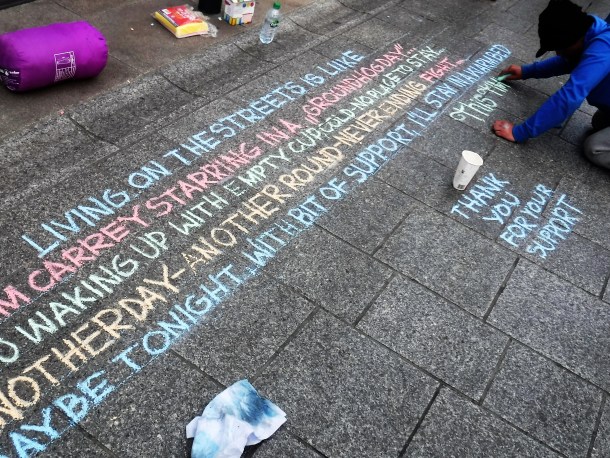 LIVING ON THE STREETS IS LIKE
M CARREY STARRING IN A „GROUNDHOGDAY"...
O WAKING UP WITH EMPTY CUP-COLD-NO PLACE TO STAY...
NOTHER DAY-ANOTHER ROUND-NEVER ENDING FIGHT...
MAYBE TONIGHT, WITH BIT OF SUPPORT, I'LL STAY IN A WARM BED
THANK
YOU
FOR YOUR
SUPPORT